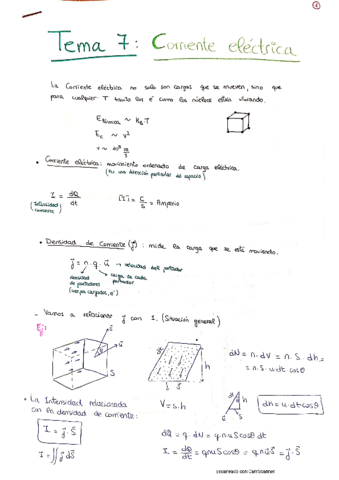 1
Tema 7: Corriente eléctrica
La Corriente eléctrica no solo son cargas que se mueven, sino que
para cualquier T tanto los e⁻ como los núcleos están vibrando.
E térmica ~ K_B T
E_c ~ v²
v ~ 10⁶ m/s
• Corriente eléctrica: movimiento ordenado de carga eléctrica.
(En una dirección particular del espacio)
I = dQ/dt
[I] = C/s = Amperio
(Intensidad corriente)
• Densidad de Corriente (j⃗): mide la carga que se está moviendo.
j⃗ = n · q · u⃗ → velocidad del portador
densidad de portadores
carga de cada portador
- Vamos a relacionar j⃗ con I. (Situación general)
Ej:
S⃗
u⃗
S
h
V = S · h
dN = n · dV = n · S · dh =
= n · S · u · dt cosθ
dh = u · dt cosθ
• La Intensidad relacionada
con la densidad de corriente:
I = j⃗ · S⃗
I = ∬ j⃗ dS⃗
dQ = q · dN = q n u S cosθ dt
I = dQ/dt = q n u S cosθ = q n u⃗ S⃗ = j⃗ · S⃗
Escaneado con CamScanner